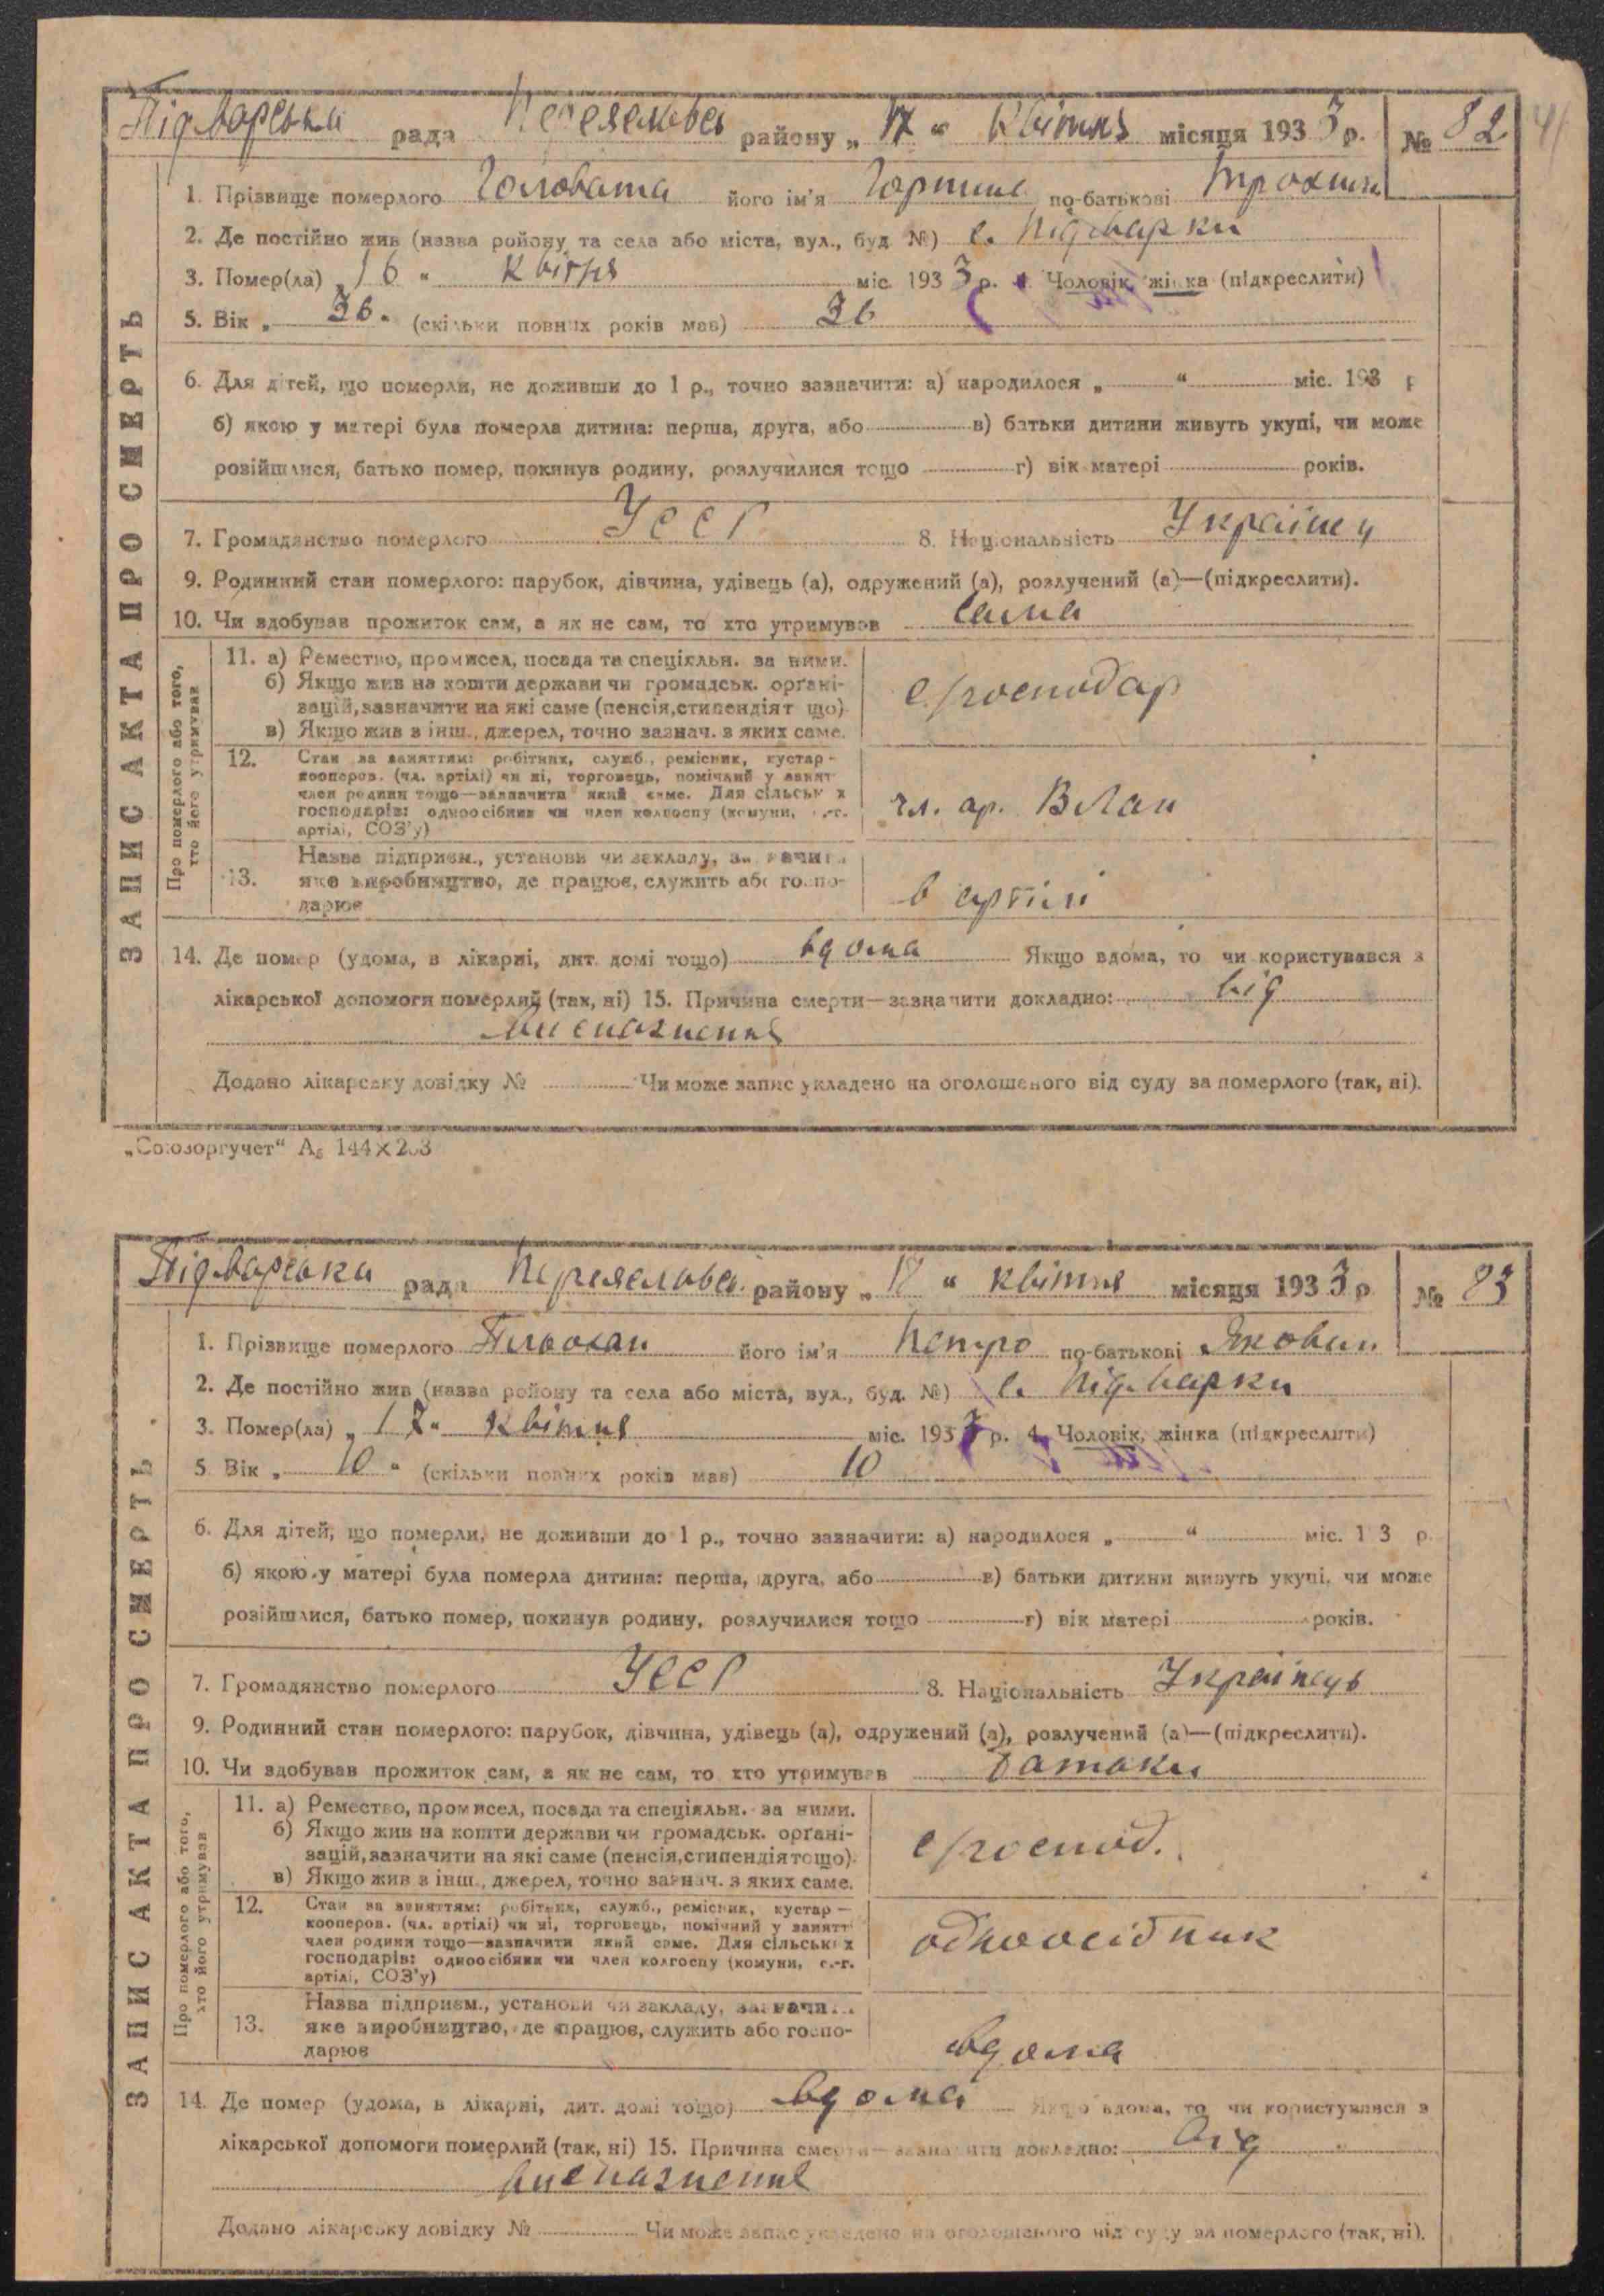 Підварська рада Переяславсь району „ 17 “ Квітня місяця 1933 р. № 82
41
ЗАПИС АКТА ПРО СМЕРТЬ
1. Прізвище померлого Головата його ім'я по-батькові
2. Де постійно жив (назва району та села або міста, вул., буд. №) с. Підварки
3. Помер(ла) „ 16 “ Квітня міс. 1933 р. 4. Чоловік, жінка (підкреслити)
5. Вік „ 36 “ (скільки повних років мав) 36
6. Для дітей, що померли, не доживши до 1 р., точно зазначити: а) народилося „ “ міс. 193 р
б) якою у матері була померла дитина: перша, друга, або в) батьки дитини живуть укупі, чи може
розійшлися, батько помер, покинув родину, розлучилися тощо г) вік матері років.
7. Громадянство померлого УССР 8. Національність
9. Родинний стан померлого: парубок, дівчина, удівець (а), одружений (а), розлучений (а)—(підкреслити).
10. Чи здобував прожиток сам, а як не сам, то хто утримував сама
Про померлого або того, хто його утримував
11. а) Ремество, промисел, посада та спеціяльн. за ними.
б) Якщо жив на кошти держави чи громадськ. органі-
зацій, зазначити на які саме (пенсія, стипендіят що)
в) Якщо жив з інш., джерел, точно зазнач. з яких саме.
с/господар
12. Стан за заняттям: робітник, служб., ремісник, кустар-
кооперов. (чл. артілі) чи ні, торговець, помічний у занят
член родини тощо—зазначити який саме. Для сільськ х
господарів: одноосібник чи член колгоспу (комуни, с.-г.
артілі, СОЗ'у)
чл. ар.
13. Назва підприєм., установи чи закладу, зазначити
яке виробництво, де працює, служить або госпо-
дарює
в артілі
14. Де помер (удома, в лікарні, дит. домі тощо) вдома Якщо вдома, то чи користувався з
лікарської допомоги померлий (так, ні) 15. Причина смерти—зазначити докладно: від
виснаження
Додано лікарську довідку № Чи може запис укладено на оголошеного від суду за померлого (так, ні).
„Союзоргучет“ А₅ 144×203
Підварська рада Переяславсь. району „ 18 “ квітня місяця 1933 р № 83
ЗАПИС АКТА ПРО СМЕРТЬ
1. Прізвище померлого його ім'я Петро по-батькові Якович
2. Де постійно жив (назва району та села або міста, вул., буд. №) с. Підварки
3. Помер(ла) „ 17 “ Квітня міс. 1933 р. 4. Чоловік, жінка (підкреслити)
5 Вік „ 10 “ (скільки повних років мав) 10
6. Для дітей, що померли, не доживши до 1 р., точно зазначити: а) народилося „ “ міс. 1 3 р.
б) якою у матері була померла дитина: перша, друга, або в) батьки дитини живуть укупі, чи може
розійшлися, батько помер, покинув родину, розлучилися тощо г) вік матері років.
7. Громадянство померлого УССР 8. Національність Українець
9. Родинний стан померлого: парубок, дівчина, удівець (а), одружений (а), розлучений (а)—(підкреслити).
10. Чи здобував прожиток сам, а як не сам, то хто утримував батьки
Про померлого або того, хто його утримував
11. а) Ремество, промисел, посада та спеціяльн. за ними.
б) Якщо жив на кошти держави чи громадськ. органі-
зацій, зазначити на які саме (пенсія, стипендія тощо).
в) Якщо жив з інш., джерел, точно зазнач. з яких саме.
с/господ.
12. Стан за заняттям: робітник, служб., ремісник, кустар—
кооперов. (чл. артілі) чи ні, торговець, помічний у занятт
член родини тощо—зазначити який саме. Для сільськ х
господарів: одноосібник чи член колгоспу (комуни, с.-г.
артілі, СОЗ'у)
одноосібник
13. Назва підприєм., установи чи закладу, зазначи...
яке виробництво, де працює, служить або госпо-
дарює
вдома
14. Де помер (удома, в лікарні, дит. домі тощо) вдома Якщо вдома, то чи користувався з
лікарської допомоги померлий (так, ні) 15. Причина смерти—зазначити докладно: від
виснаження
Додано лікарську довідку № Чи може запис укладено на оголошеного від суду за померлого (так, ні).